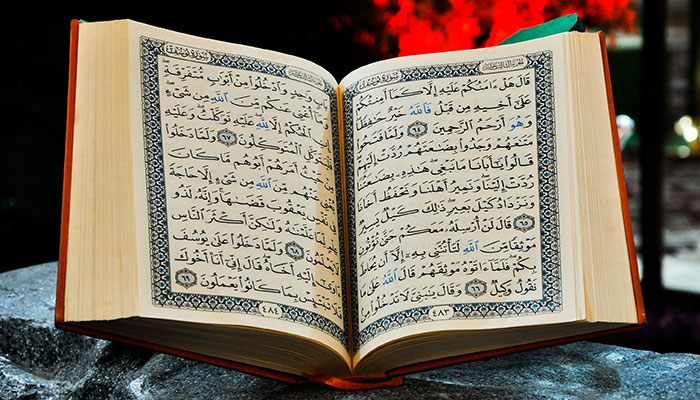 سورة يوسف
قَالَ هَلْ ءَامَنُكُمْ عَلَيْهِ إِلَّا كَمَآ أَمِنتُكُمْ
عَلَىٰٓ أَخِيهِ مِن قَبْلُ فَٱللَّهُ خَيْرٌ حَٰفِظًا
وَهُوَ أَرْحَمُ ٱلرَّٰحِمِينَ ٦٤ وَلَمَّا فَتَحُوا۟
مَتَٰعَهُمْ وَجَدُوا۟ بِضَٰعَتَهُمْ رُدَّتْ إِلَيْهِمْ
قَالُوا۟ يَٰٓأَبَانَا مَا نَبْغِى هَٰذِهِۦ بِضَٰعَتُنَا
رُدَّتْ إِلَيْنَا وَنَمِيرُ أَهْلَنَا وَنَحْفَظُ أَخَانَا
وَنَزْدَادُ كَيْلَ بَعِيرٍ ذَٰلِكَ كَيْلٌ يَسِيرٌ ٦٥
قَالَ لَنْ أُرْسِلَهُۥ مَعَكُمْ حَتَّىٰ تُؤْتُونِ
مَوْثِقًا مِّنَ ٱللَّهِ لَتَأْتُنَّنِى بِهِۦٓ إِلَّآ أَن يُحَاطَ
بِكُمْ فَلَمَّآ ءَاتَوْهُ مَوْثِقَهُمْ قَالَ ٱللَّهُ عَلَىٰ مَا
نَقُولُ وَكِيلٌ ٦٦ وَقَالَ يَٰبَنِىَّ لَا تَدْخُلُوا۟ مِنۢ
٤٨٣
سورة يوسف
بَابٍ وَٰحِدٍ وَٱدْخُلُوا۟ مِنْ أَبْوَٰبٍ مُّتَفَرِّقَةٍ
وَمَآ أُغْنِى عَنكُم مِّنَ ٱللَّهِ مِن شَىْءٍ
ٱلْحُكْمُ إِلَّا لِلَّهِ عَلَيْهِ تَوَكَّلْتُ وَعَلَيْهِ
فَلْيَتَوَكَّلِ ٱلْمُتَوَكِّلُونَ ٦٧ وَلَمَّا دَخَلُوا۟
حَيْثُ أَمَرَهُمْ أَبُوهُم مَّا كَانَ
عَنْهُم مِّنَ ٱللَّهِ مِن شَىْءٍ إِلَّا حَاجَةً
يَعْقُوبَ قَضَىٰهَا وَإِنَّهُۥ لَذُو
عَلَّمْنَٰهُ وَلَٰكِنَّ أَكْثَرَ ٱلنَّاسِ
يَعْلَمُونَ ٦٨ وَلَمَّا دَخَلُوا۟ عَلَىٰ يُوسُفَ
إِلَيْهِ أَخَاهُ قَالَ إِنِّىٓ أَنَا۠ أَخُوكَ
تَبْتَئِسْ بِمَا كَانُوا۟ يَعْمَلُونَ ٦٩
٤٨٤